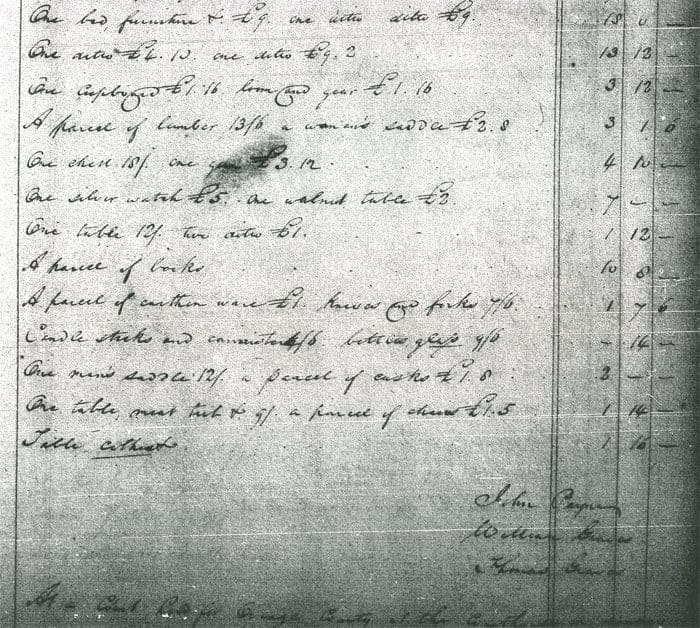 One bed, furniture & £9. one ditto ditto £9. 18 0 —
One ditto £4. 10. one ditto £9. 2 13 12 —
One cupboard £1. 16 loom and gear £1. 16 3 12 —
A parcel of lumber 13/6 a woman's saddle £2. 8 3 1 6
One chest 18/. one £3. 12 4 10 —
One silver watch £5. one walnut table £2. 7 — —
One table 12/. two ditto £1. 1 12 —
A parcel of books 10 8 —
A parcel of earthen ware £1. knives and forks 7/6 1 7 6
Candle sticks and /6 bottles glass 9/6 — 14 —
One man's saddle 12/. a parcel of casks £1. 8 2 — —
One table, meat tub & 9/. a parcel of £1. 5 1 14 —
Table 1 16 —
John Payne
William Graves
Thomas Graves
At a Court for County at the